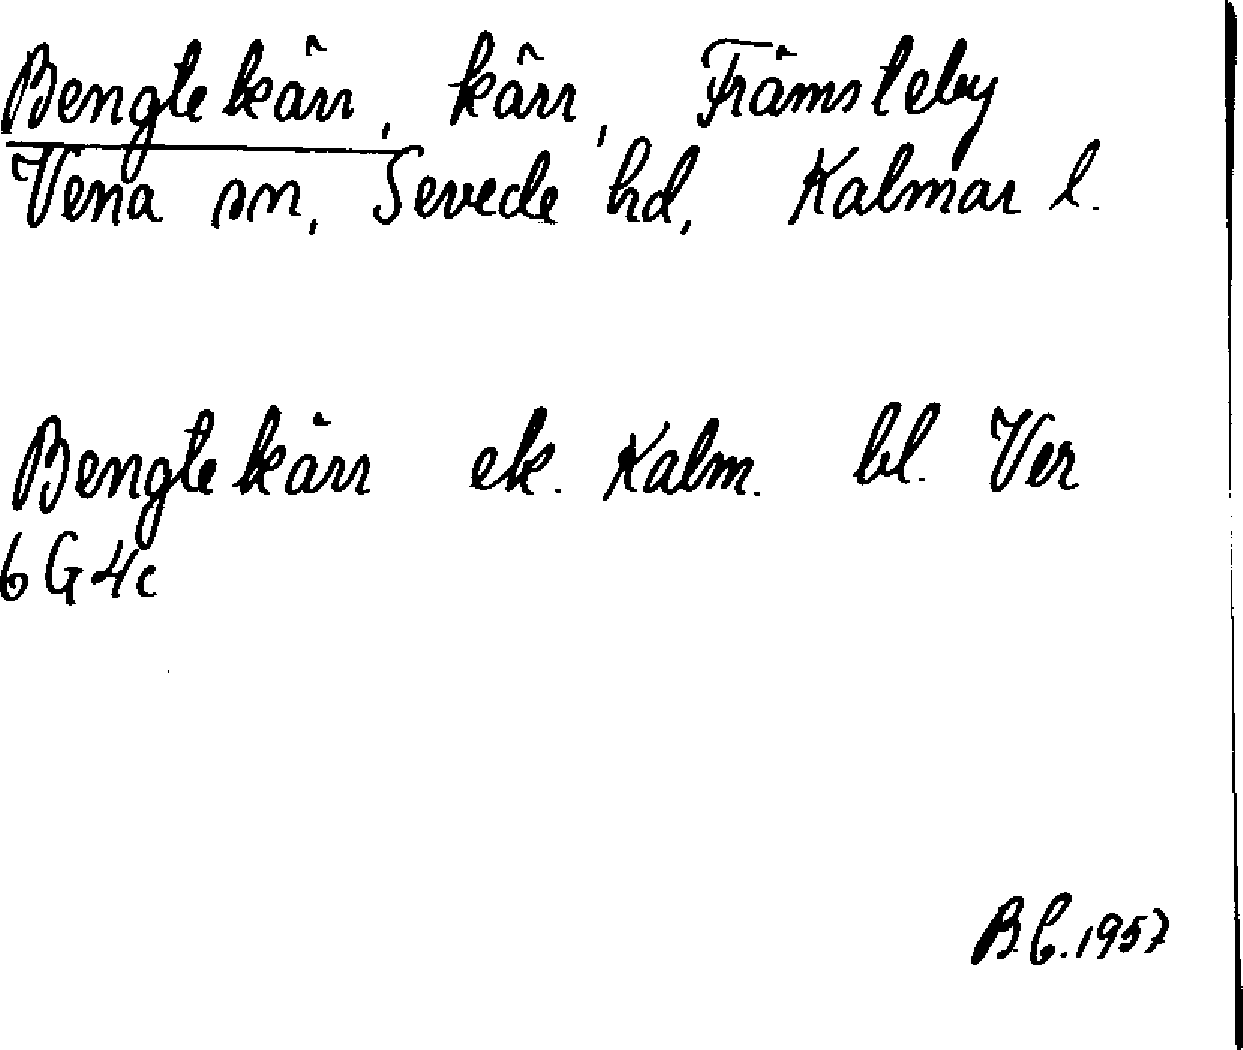 Bengtekärr, kärr, Främsteby
Vena sn, Sevede hd, Kalmar l.
Bengtekärr ek. Kalm. bl. Ver
6G4c
B.C. 1957